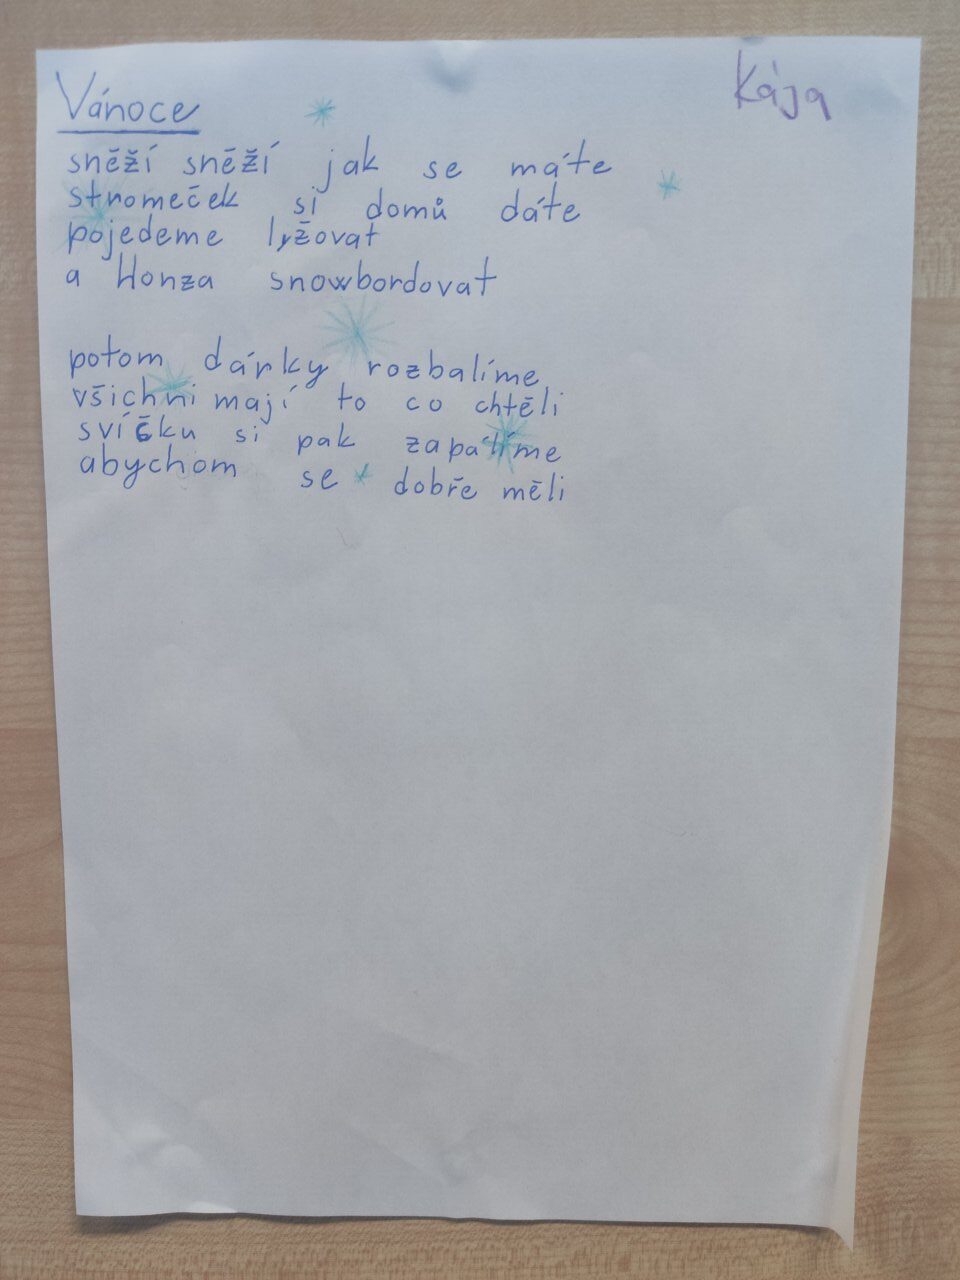 Vánoce
Kája
sněží sněží jak se máte
stromeček si domů dáte
pojedeme lyžovat
a Honza snowbordovat
potom dárky rozbalíme
všichni mají to co chtěli
svíčku si pak zapálíme
abychom se dobře měli